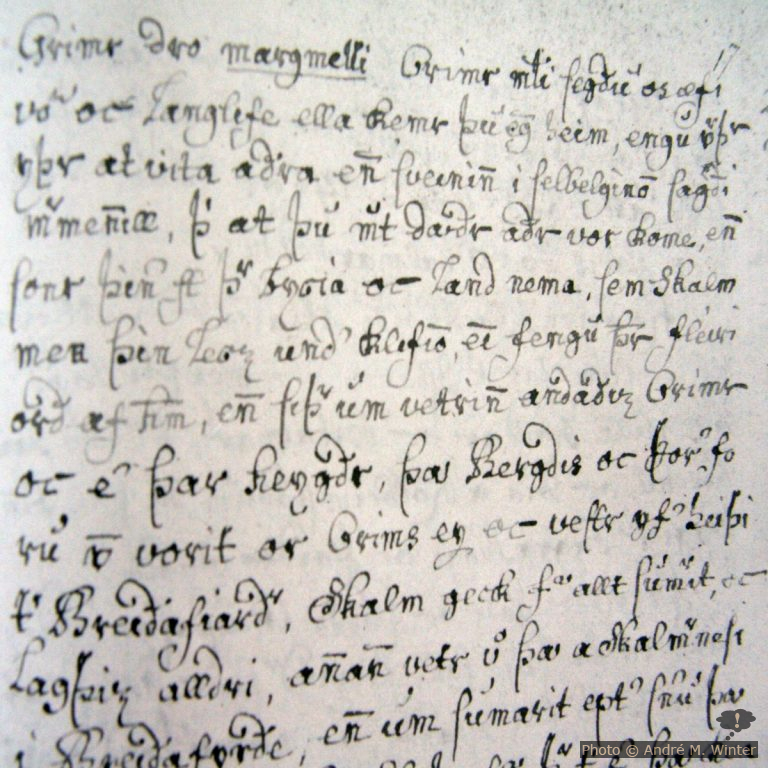 Grimr dro margmelli Grimr mti segdu os æfi
vor oc Langlife ella kemr þu eg heim, engu vþr
yþr at vita adra en sveinin i selbelgino sagdi
þ at þu mt daudr adr vor kome, en
sonr þin þr bygia oc Land nema, sem Skalm
mer þin und klifio, ei fengu þr fleiri
ord af him, en siþr um vetrin andadiz Grimr
oc e þar heygdr, þa Bergdis oc þor fo
ru v vorit or Grims ey oc vestr yf heiþi
t Breidafiardr, Skalm geck f allt sumit, oc
Lagþiz alldri, anan vetr v þa a Skalmnesi
i Breidafyrde, en um sumarit ept snu þa
Photo © André M. Winter